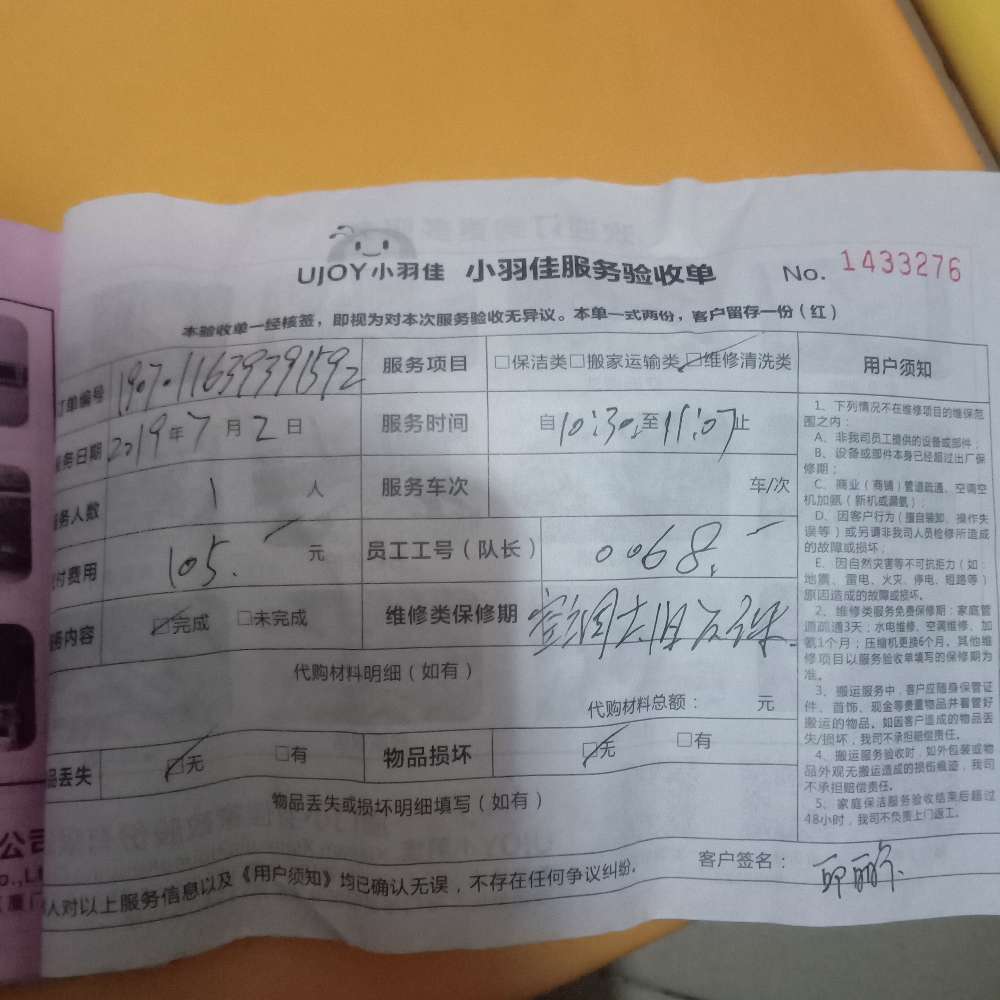 UJOY小羽佳 小羽佳服务验收单 No. 1433276
本验收单一经核签，即视为对本次服务验收无异议。本单一式两份，客户留存一份（红）
订单编号 1907011639391592 服务项目 □保洁类□搬家运输类☑维修清洗类
服务日期 2019年7月2日 服务时间 自10:30至11:07止
服务人数 1 人 服务车次 车/次
付费用 105. 元 员工工号（队长） 0068.
务内容 ☑完成 □未完成 维修类保修期
代购材料明细（如有）
代购材料总额： 元
品丢失 ☑无 □有 物品损坏 ☑无 □有
物品丢失或损坏明细填写（如有）
人对以上服务信息以及《用户须知》均已确认无误，不存在任何争议纠纷。 客户签名：
用户须知
1、下列情况不在维修项目的维保范
围之内：
A、非我司员工提供的设备或部件；
B、设备或部件本身已经超过出厂保
修期；
C、商业（商铺）管道疏通、空调空
机加氨（新机或漏氨）；
D、因客户行为（擅自装卸、操作失
误等）或另请非我司人员检修所造成
的故障或损坏；
E、因自然灾害等不可抗拒力（如：
地震、雷电、火灾、停电、短路等）
原因造成的故障或损坏。
2、维修类服务免费保修期：家庭管
道疏通3天；水电维修、空调维修、加
氨1个月；压缩机更换6个月。其他维
修项目以服务验收单填写的保修期为
准。
3、搬运服务中，客户应随身保管证
件、首饰、现金等贵重物品并看管好
搬运的物品。如因客户造成的物品丢
失/损坏，我司不承担赔偿责任。
4、搬运服务验收时，如外包装或物
品外观无搬运造成的损伤痕迹，我司
不承担赔偿责任。
5、家庭保洁服务验收结束后超过
48小时，我司不负责上门返工。
公司